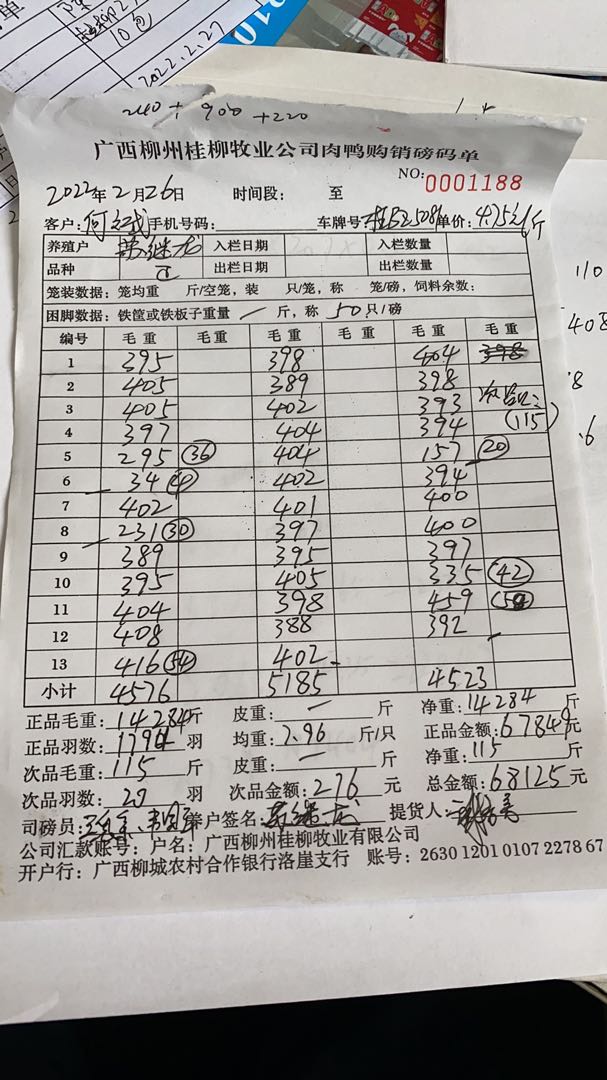 10包
2022.2.27
240 + 900 + 220
广西柳州桂柳牧业公司肉鸭购销磅码单
NO: 0001188
2022年2月26日 时间段: 至
客户: 手机号码: 车牌号: 单价: 4.75元/斤
养殖户 苏继龙 入栏日期 入栏数量
品种 出栏日期 出栏数量
笼装数据: 笼均重 斤/空笼, 装 只/笼, 称 笼/磅, 饲料余数:
困脚数据: 铁筐或铁板子重量 — 斤, 称 50只/磅
编号 毛重 毛重 毛重 毛重 毛重 毛重
1 395 398 404 398
2 405 389 398
3 405 402 393 次品:
4 397 404 394 (115)
5 295 (36) 404 157 (20)
6 34 (4) 402 394
7 402 401 400
8 231 (30) 397 400
9 389 395 397
10 395 405 335 (42)
11 404 398 459
12 408 388 392
13 416 (54) 402
小计 4576 5185 4523
正品毛重: 14284斤 皮重: — 斤 净重: 14284 斤
正品羽数: 1794 羽 均重: 7.96 斤/只 正品金额: 67849元
次品毛重: 115 斤 皮重: — 斤 净重: 115 斤
次品羽数: 20 羽 次品金额: 276 元 总金额: 68125元
司磅员: 养户签名: 苏继龙 提货人:
公司汇款账号: 户名: 广西柳州桂柳牧业有限公司
开户行: 广西柳城农村合作银行洛崖支行 账号: 2630 1201 0107 2278 67
110
408
8
.6